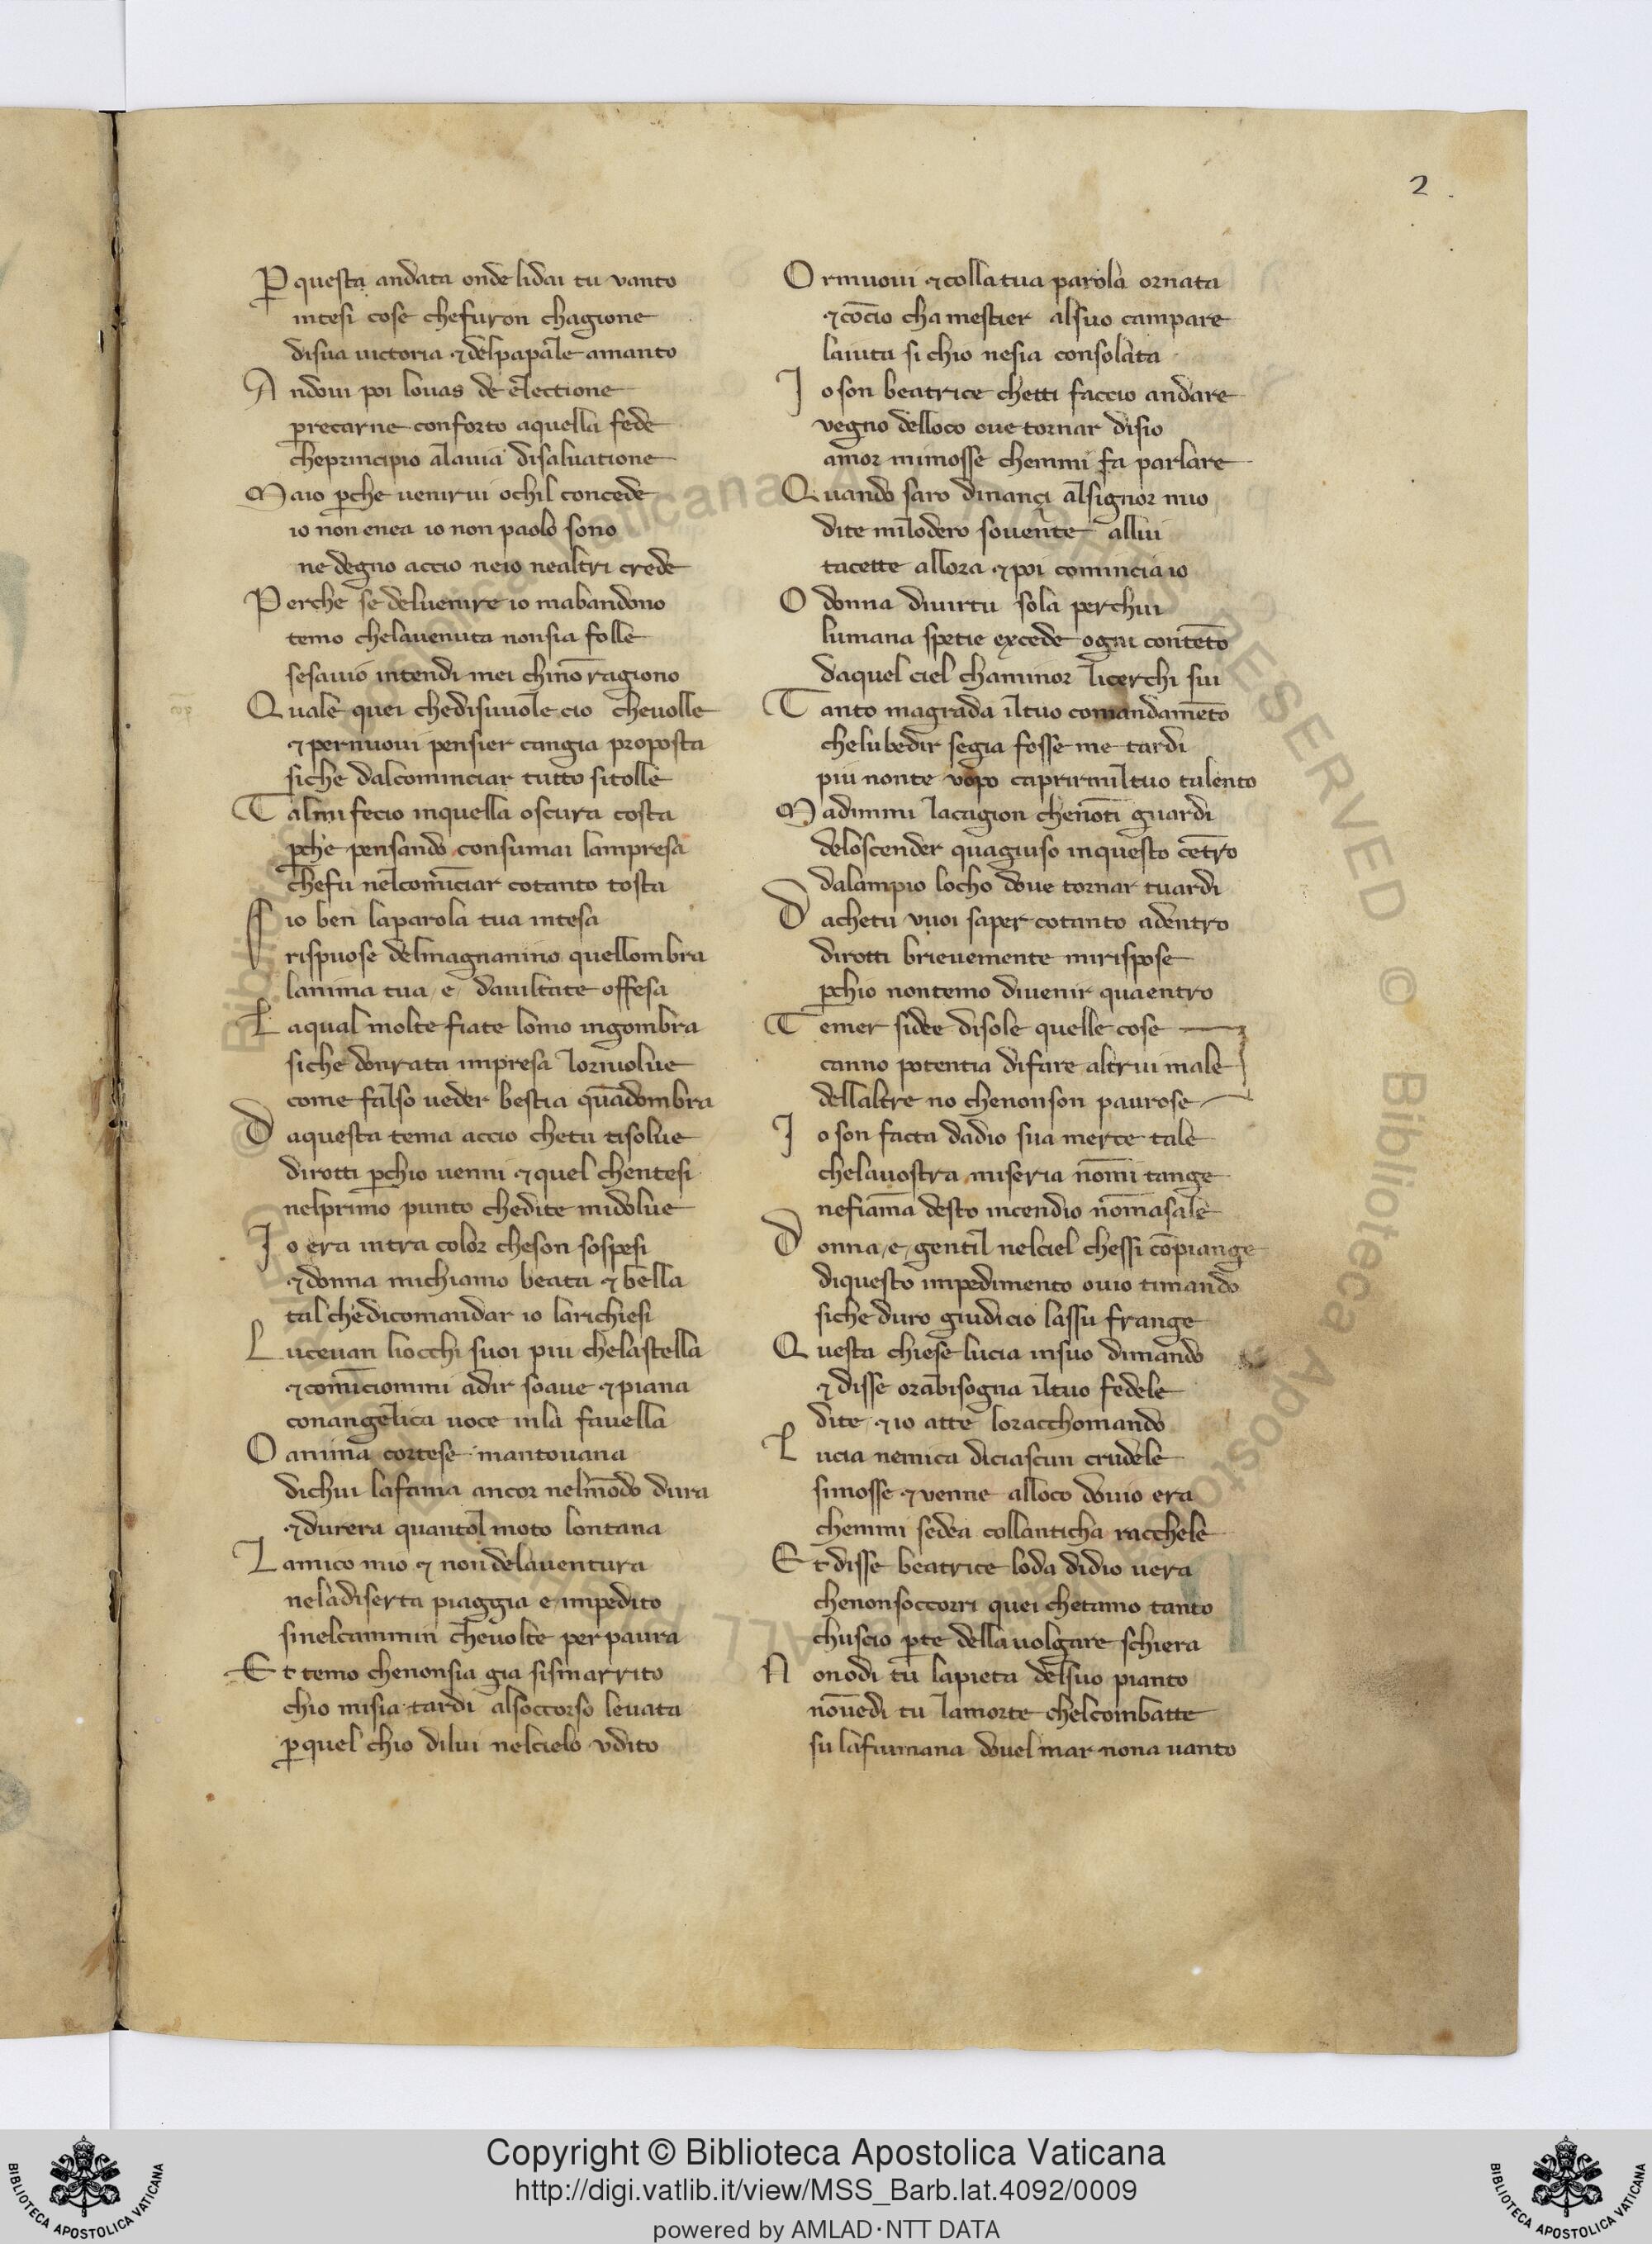 2
P̄ questa andata onde lidai tu vanto
intesi cose chefuron chagione
disua uictoria ⁊ delpapale amanto
A ndoui poi louas de electione
p̄recarne conforto aquella fede
cheprincipio alauia disaluatione
M aio p̄che uenirui ochil concede
io non enea io non paolo sono
ne degno accio neio nealtri crede
P erche se deluenire io mabandono
temo chelauenuta nonsia folle
sesauio intendi mei chinō ragiono
Q uale quei chedisuuole cio cheuolle
⁊ pernuoui pensier cangia proposta
siche dalcominciar tutto sitolle
T almi fecio inquella oscura costa
p̄che pensando consumai lampresa
chefu nelcomīciar cotanto tosta
S io ben laparola tua intesa
rispuose delmagnanimo quellombra
lanima tua e dauiltate offesa
L aqual molte fiate lomo ingombra
siche donrata impresa loriuolue
come falso ueder bestia quādombra
D aquesta tema accio chetu tisolue
dirotti p̄chio uenni ⁊ quel chentesi
nelprimo punto chedite midolue
I o era intra color cheson sospesi
⁊ donna michiamo beata ⁊ bella
tal chedicomandar io larichiesi
L uceuan liocchi suoi piu chelastella
⁊ comīciommi adir soaue ⁊ piana
conangelica uoce inla fauella
O anima cortese mantouana
dichui lafama ancor nelmōdo dura
⁊ durera quantol moto lontana
L amico mio ⁊ non delauentura
neladiserta piaggia e impedito
sinelcammin cheuolte per paura
E t temo chenonsia gia sismarrito
chio misia tardi alsoccorso leuata
p̄ quel chio dilui nelcielo vdito
O rmuoui ⁊ colla tua parola ornata
⁊ cōcio cha mestier alsuo campare
laiuta si chio nesia consolata
I o son beatrice chetti faccio andare
vegno delloco oue tornar disio
amor mimosse chemmi fa parlare
Q uando saro dinançi alsignor mio
dite milodero souente allui
tacette allora ⁊ poi cominciaio
O donna diuirtu sola perchui
lumana spetie excede ogni contēto
daquel ciel chaminor licerchi sui
T anto magrada iltuo comandamēto
chelubedir segia fosse me tardi
piu nonte vopo caprirmiltuo talento
M adimmi lacagion chenōti guardi
deloscender quagiuso inquesto cētro
dalampio locho doue tornar tuardi
D achetu vuoi saper cotanto adentro
dirotti brieuemente mirispose
p̄chio nontemo diuenir quaentro
T emer sidee disole quelle cose
canno potentia difare altrui male
dellaltre no chenonson paurose
I o son facta dadio sua merce tale
chelauostra miseria nōmi tange
nefiāma desto incendio nōmasale
D onna e gentil nelciel chessi cōpiange
diquesto impedimento ouio timando
siche duro giudicio lassu frange
Q uesta chiese lucia insuo dimando
⁊ disse orabisogna iltuo fedele
dite ⁊ io atte loracchomando
L ucia nemica diciascun crudele
simosse ⁊ venne alloco douio era
chemmi sedea collanticha racchele
E t disse beatrice loda didio uera
chenonsoccorri quei chetamo tanto
chuscio p̄te dellauolgare schiera
N onodi tu lapieta delsuo pianto
nōuedi tu lamorte chelcombatte
su lafiumana douel mar nona uanto
Copyright © Biblioteca Apostolica Vaticana
http://digi.vatlib.it/view/MSS_Barb.lat.4092/0009
powered by AMLAD·NTT DATA
BIBLIOTECA APOSTOLICA VATICANA
BIBLIOTECA APOSTOLICA VATICANA